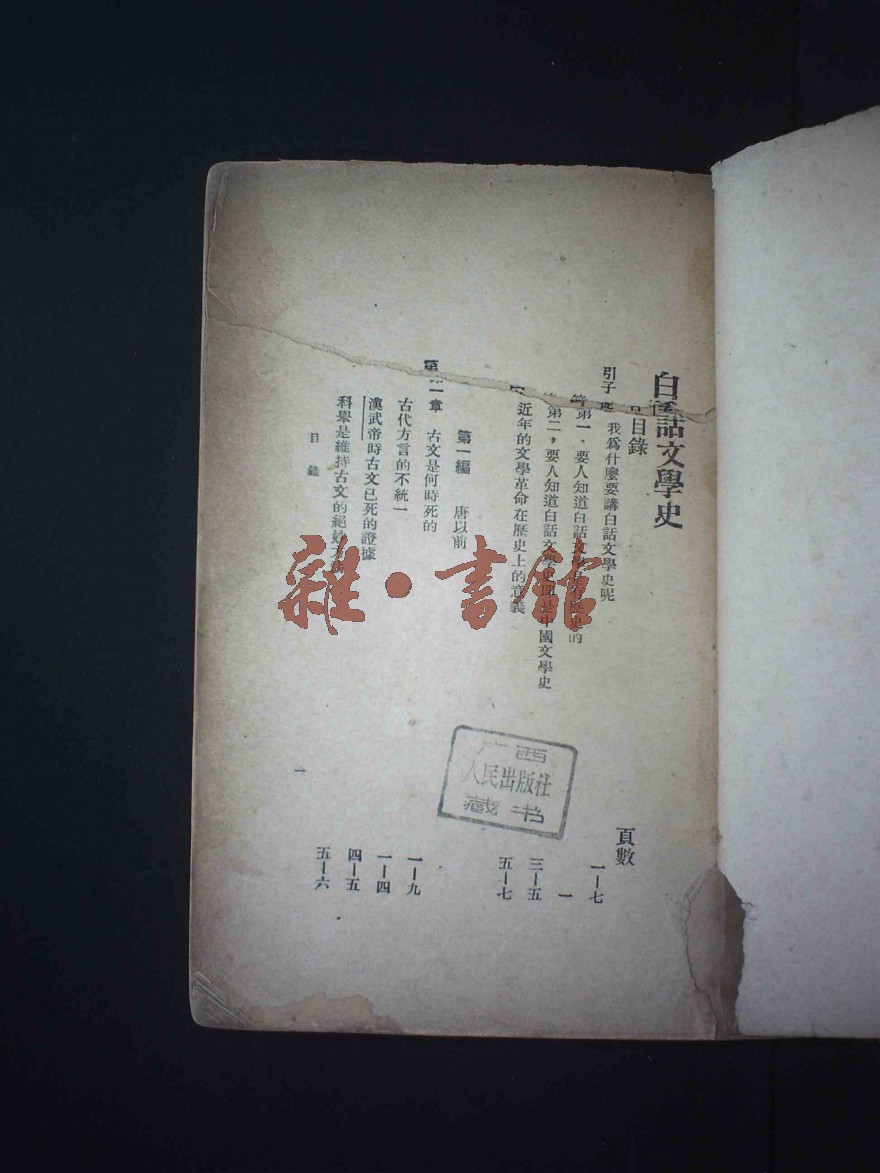 白話文學史
目錄
頁數
引子 我爲什麼要講白話文學史呢 一－七
第一，要人知道白話文學是有歷史的 一
第二，要人知道白話文學史即是中國文學史 三－五
近年的文學革命在歷史上的意義 五－七
第一編 唐以前
第一章 古文是何時死的 一－九
古代方言的不統一 一－四
漢武帝時古文已死的證據 四－五
科舉是維持古文的絕妙方法 五－六
目錄
一
广西
人民出版社
藏书
雜·書館